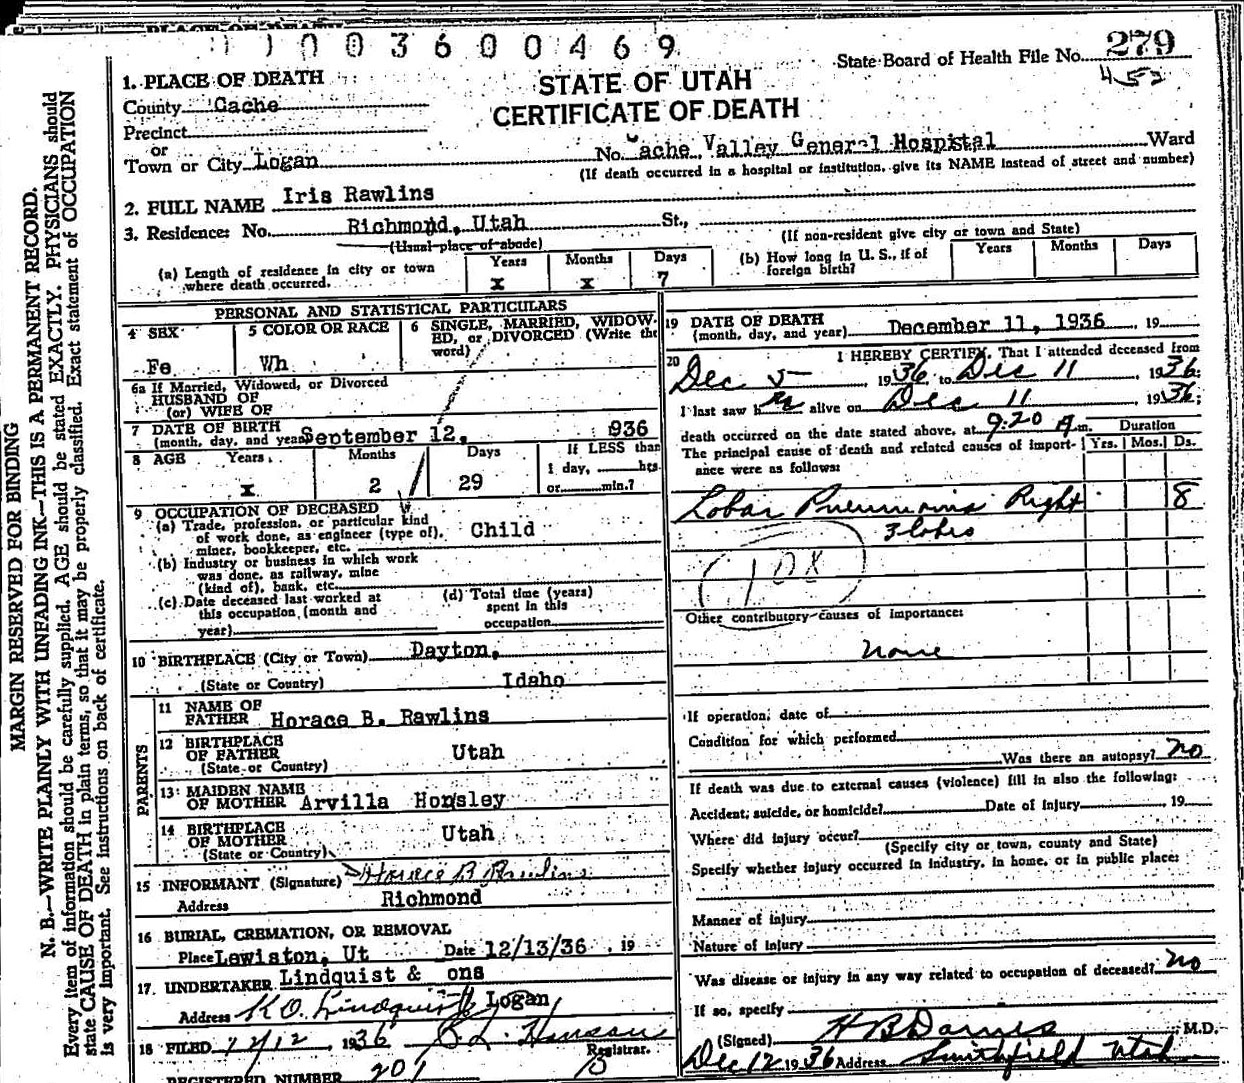 11003600469
State Board of Health File No. 279
452
STATE OF UTAH
CERTIFICATE OF DEATH
1. PLACE OF DEATH
County Cache
Precinct
or
Town or City Logan
No. Cache Valley General Hospital Ward
(If death occurred in a hospital or institution, give its NAME instead of street and number)
2. FULL NAME Iris Rawlins
3. Residence: No. Richmond, Utah St.,
(Usual place of abode)
(If non-resident give city or town and State)
(a) Length of residence in city or town where death occurred.
Years Months Days
x x 7
(b) How long in U. S., if of foreign birth?
Years Months Days
PERSONAL AND STATISTICAL PARTICULARS
4 SEX
Fe
5 COLOR OR RACE
Wh
6 SINGLE, MARRIED, WIDOW-
ED, or DIVORCED (Write the
word)
6a If Married, Widowed, or Divorced
HUSBAND OF
(or) WIFE OF
7 DATE OF BIRTH
(month, day, and year) September 12, 1936
8 AGE Years Months Days If LESS than
1 day, hrs.
or min.?
x 2 29
9 OCCUPATION OF DECEASED
(a) Trade, profession, or particular kind
of work done, as engineer (type of), Child
miner, bookkeeper, etc.
(b) Industry or business in which work
was done, as railway, mine
(kind of), bank, etc.
(c) Date deceased last worked at
this occupation (month and
year)
(d) Total time (years)
spent in this
occupation
10 BIRTHPLACE (City or Town) Dayton,
(State or Country) Idaho
PARENTS
11 NAME OF
FATHER Horace B. Rawlins
12 BIRTHPLACE
OF FATHER Utah
(State or Country)
13 MAIDEN NAME
OF MOTHER Arvilla Honsley
14 BIRTHPLACE
OF MOTHER Utah
(State or Country)
15 INFORMANT (Signature) Horace B Rawlins
Address Richmond
16 BURIAL, CREMATION, OR REMOVAL
Place Lewiston, Ut Date 12/13/36, 19
17. UNDERTAKER Lindquist & ons
Address K.O. Lindquist Logan
18 FILED 12/12, 1936
Registrar.
REGISTERED NUMBER 201
19 DATE OF DEATH
(month, day, and year) December 11, 1936, 19
20 I HEREBY CERTIFY, That I attended deceased from
Dec 5 1936, to Dec 11 1936;
I last saw her alive on Dec 11 1936;
death occurred on the date stated above, at 9:20 A m.
Duration
Yrs. Mos. Ds.
The principal cause of death and related causes of import-
ance were as follows:
Lobar Pneumonia Right 8
3 lobes
108
Other contributory causes of importance:
none
If operation, date of
Condition for which performed
Was there an autopsy? no
If death was due to external causes (violence) fill in also the following:
Accident, suicide, or homicide? Date of injury 19
Where did injury occur?
(Specify city or town, county and State)
Specify whether injury occurred in industry, in home, or in public place:
Manner of injury
Nature of injury
Was disease or injury in any way related to occupation of deceased? no
If so, specify
(Signed) M.D.
Dec 12 1936 Address Smithfield Utah
MARGIN RESERVED FOR BINDING
N. B.—WRITE PLAINLY WITH UNFADING INK—THIS IS A PERMANENT RECORD.
Every item of information should be carefully supplied. AGE should be stated EXACTLY. PHYSICIANS should
state CAUSE OF DEATH in plain terms, so that it may be properly classified. Exact statement of OCCUPATION
is very important. See instructions on back of certificate.